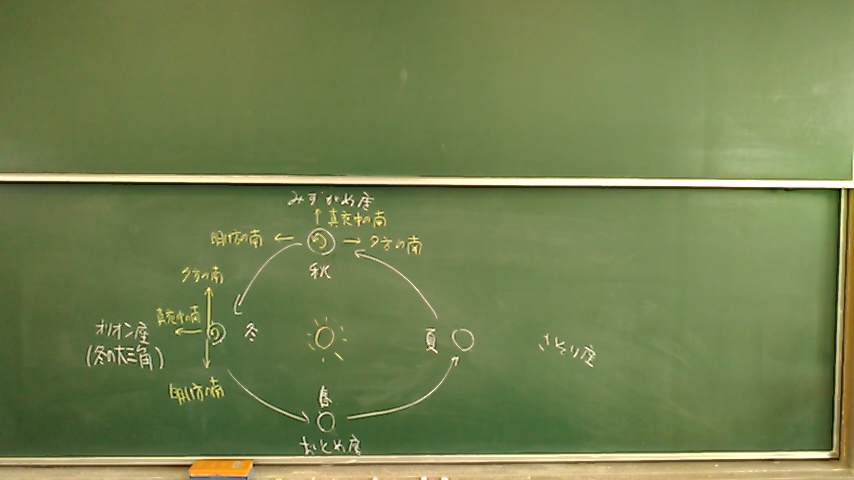 みずがめ座
真夜中の南
明け方の南
夕方の南
秋
夕方の南
真夜中の南
オリオン座
(冬の大三角)
冬
明け方の南
夏
さそり座
春
おとめ座